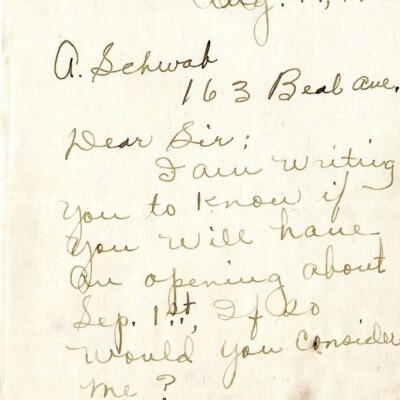 Aug.
A. Schwab
163 Beal ave.
Dear Sir:
I am writing
you to know if
you will have
an opening about
Sep. 1st, If so
would you consider
me?